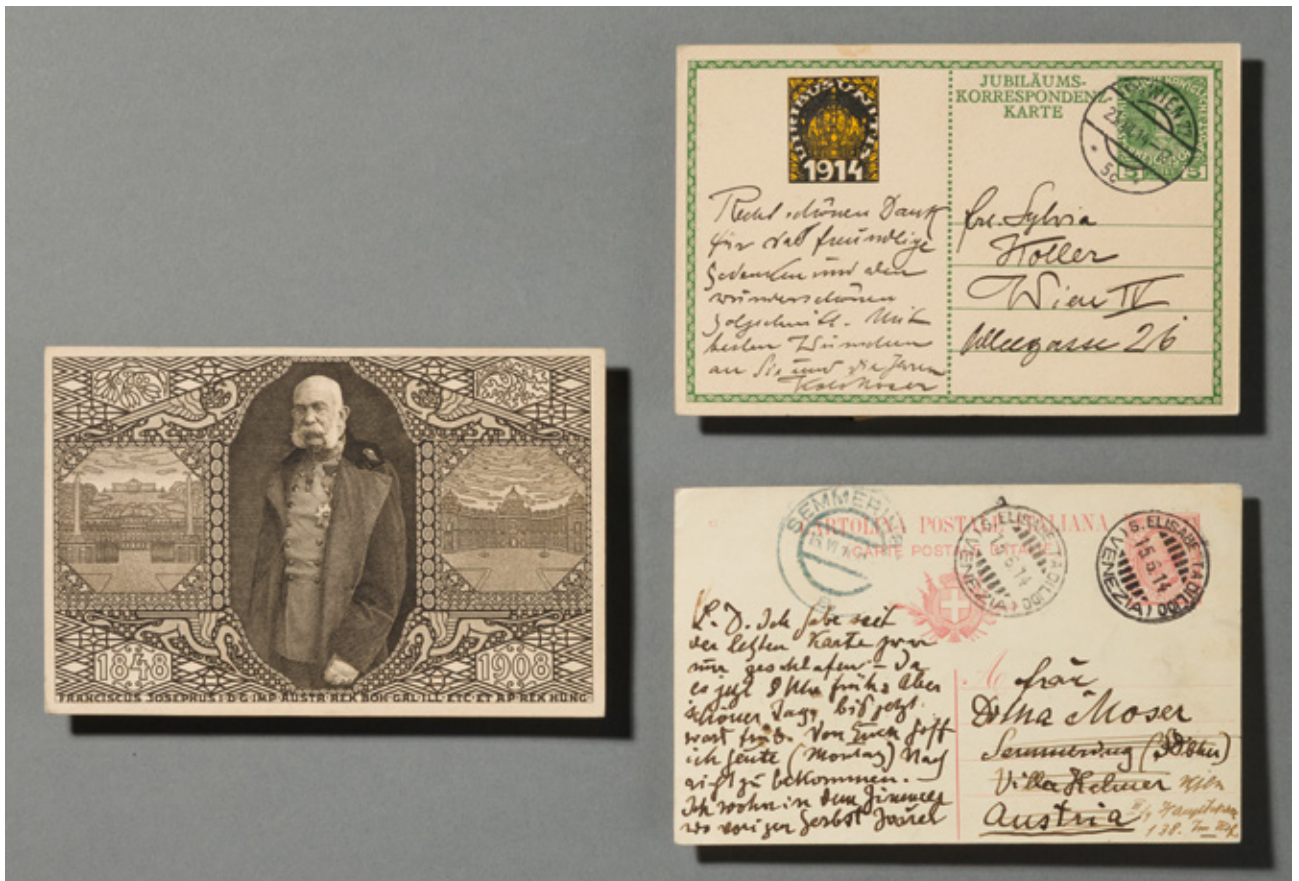 1848 1908
FRANCISCUS JOSEPHUS I D G IMP AUSTR REX BOH GAL ILL ETC ET AP REX HUNG
VIRIBUS UNITIS
1914
JUBILÄUMS-
KORRESPONDENZ
KARTE
WIEN
5 5
Recht schönen Dank
für das freundlige
Gedenken und den
wunderschönen
Holzschnitt. Mit
besten Wünschen
an Sie und die Ihren
Kolo Moser
Frl. Sylvia
Koller
Wien IV
Alleegasse 26
SEMMERING
CARTOLINA POSTALE ITALIANA
CARTE POSTALE D'ITALIE
S. ELISABETTA DI LIDO (VENEZIA)
15.6.14
S. ELISABETTA DI LIDO (VENEZIA)
15.6.14
L. D. Ich habe seit
der letzten Karte zwar
nur geschlafen – Da
es jetzt 9 Uhr früh. Aber
schöner Tag, bis jetzt.
Von Euch hoff
ich heute (Montag) Nach
richt zu bekommen. –
Ich wohn in dem Zimmer
wo voriger Herbst
A Frau
Ditha Moser
Semmering
Villa Helmer Wien
Austria
138.